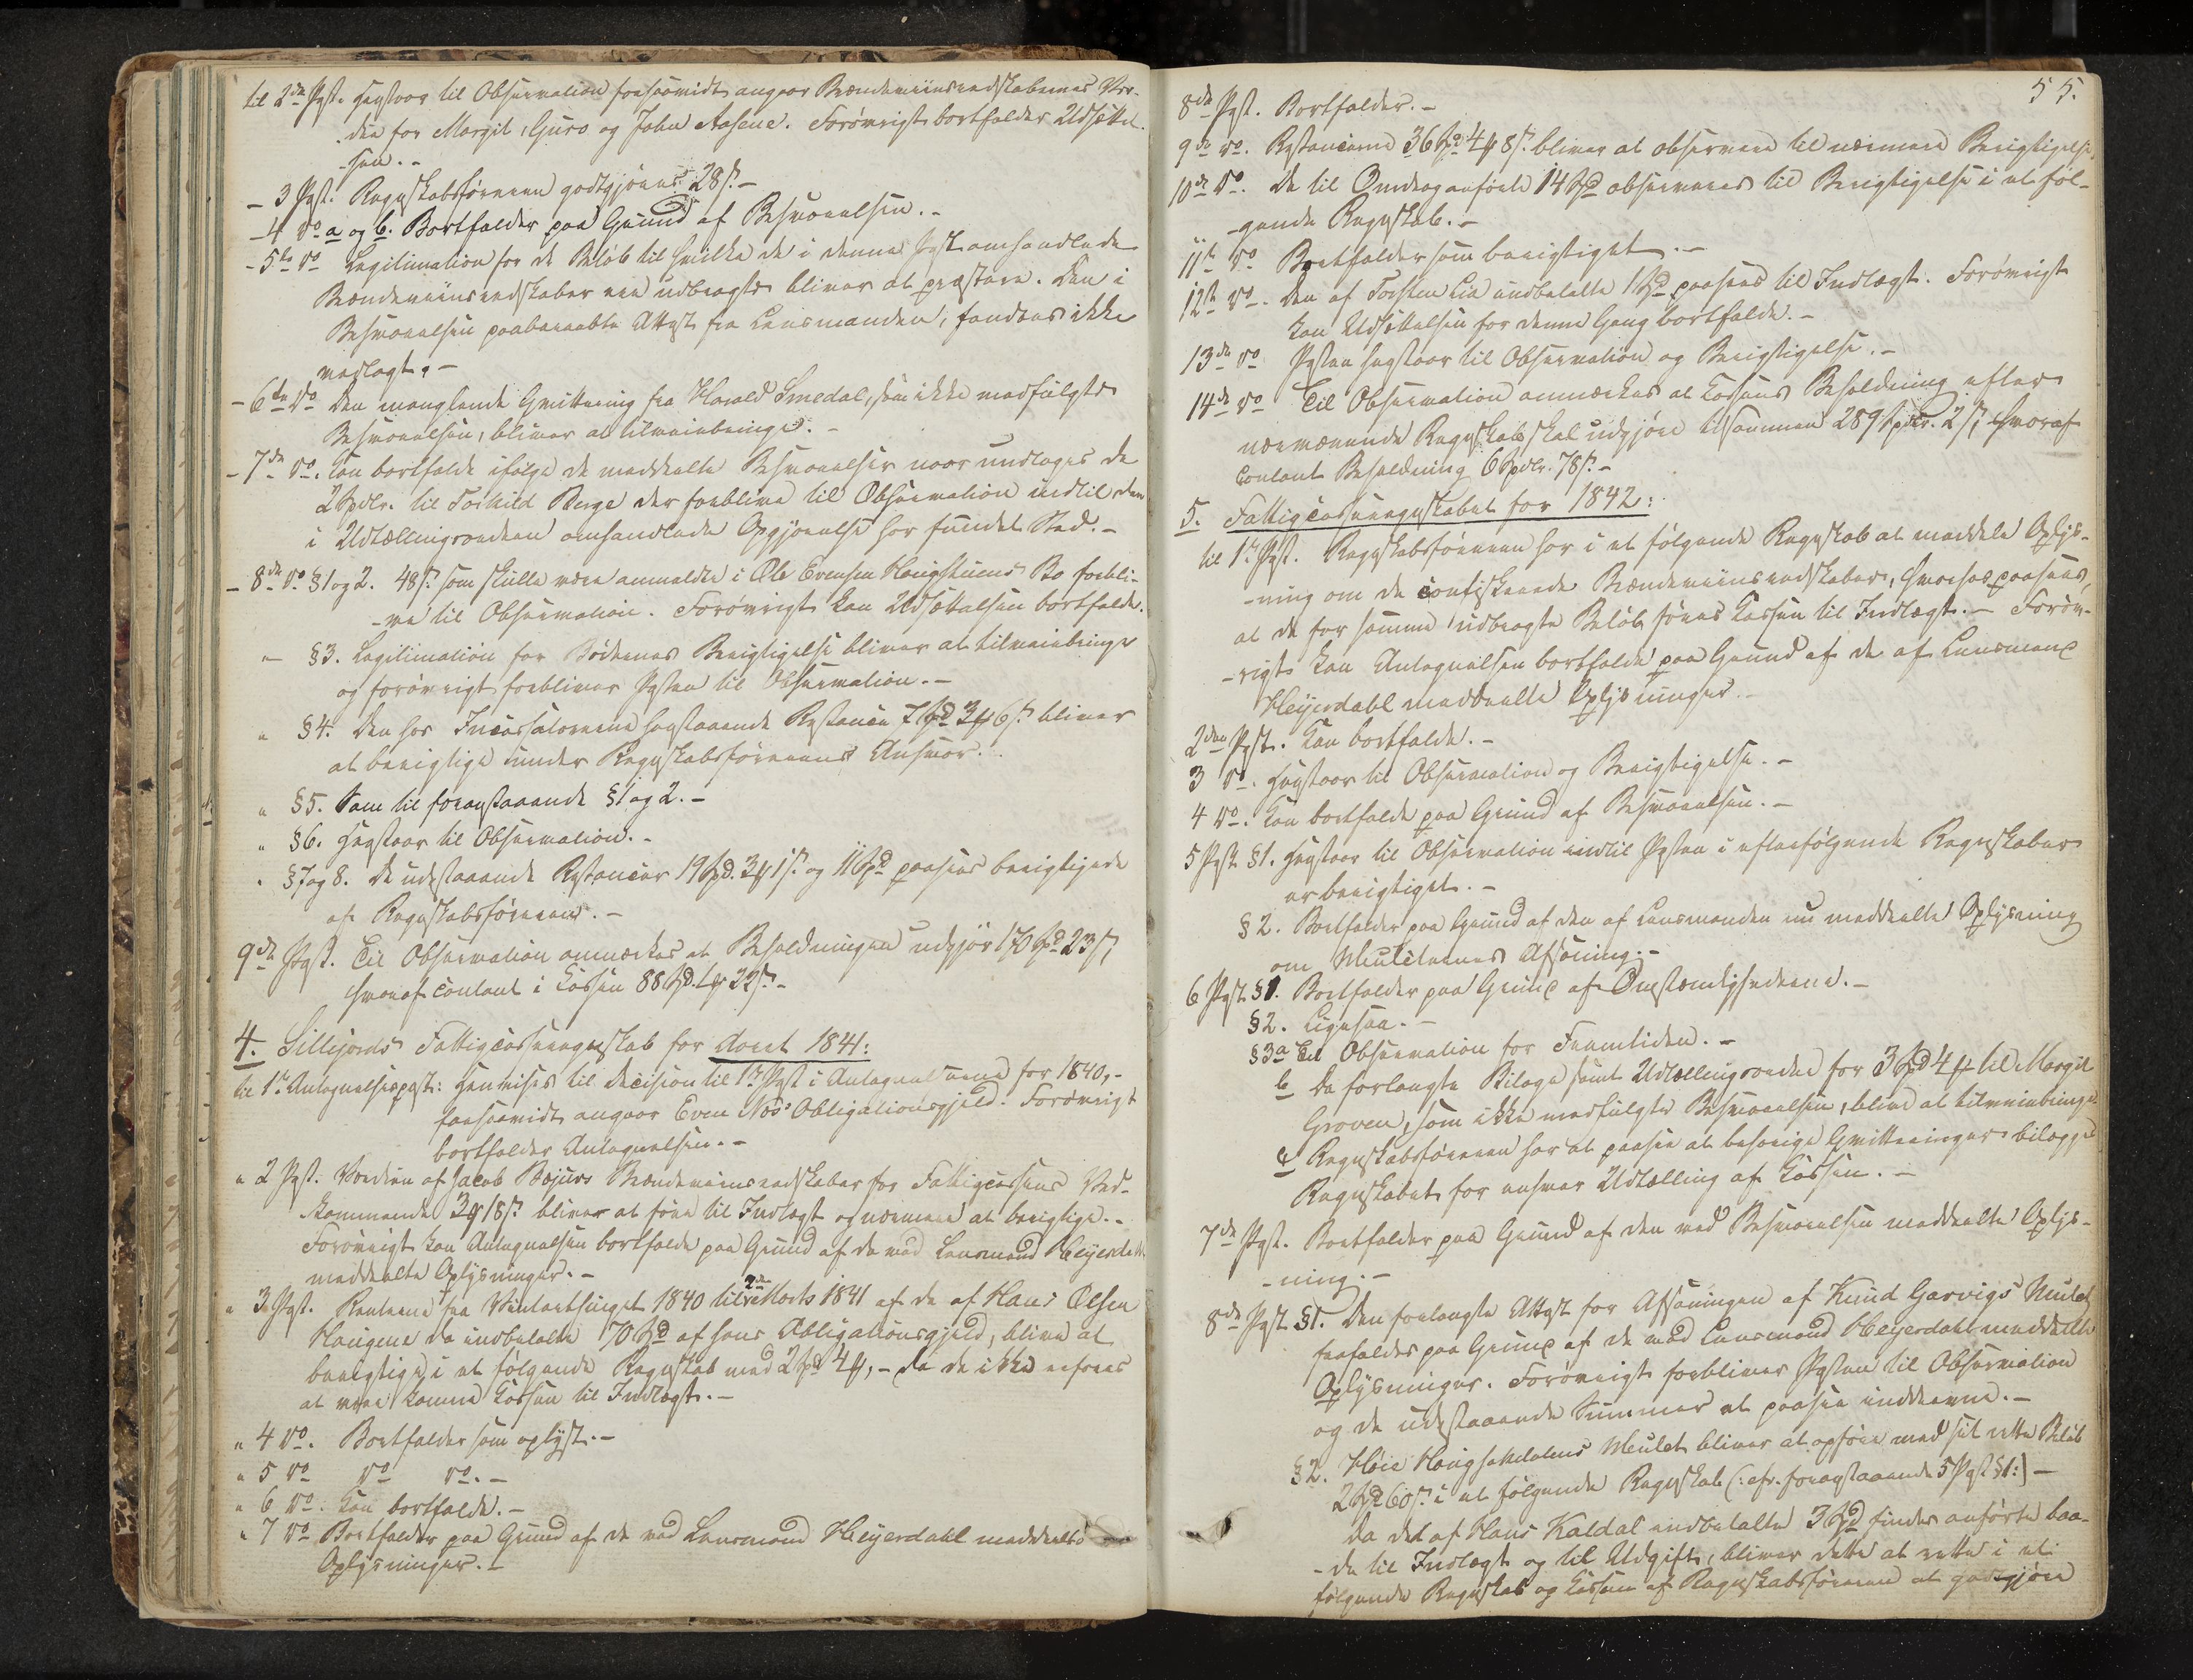 til 2den Pgst. Henstaar til Observation forsaavidt angaar Brændeviinsredskabernes Vær-
die for Margit, Guro og John Aasene. Forøvrigt bortfalder Udsættel-
sen.-
- 3 Pgst. Regnskabsføreren godtgjøres 28 s.-
- 4 do a og b. Bortfalder paa Grund af Besvarelsen.-
- 5te do Legitimation for de Beløb til hvilke de i denne Post omhandlede
Brændeviinsredskaber ere udbragte bliver at præstere. Den i
Besvarelsen paaberaabte Attest fra Lensmanden, fandtes ikke
vedlagt.-
- 6te do Den manglende Qvittering fra Harald Smedal, som ikke medfulgte
Besvarelsen, bliver at tilveiebringe.-
- 7de do. Kan bortfalde ifølge de meddeelte Besvarelser naar undtages de
2 Spdlr. til Torkild Berge der forblive til Observation indtil den
i Udtællingsordren omhandlede Opgjørelse har fundet Sted.-
- 8de do §1 og 2. 48 s. som skulle være anmeldte i Ole Evensen Haugstuens Bo forbli-
ve til Observation. Forøvrigt kan Udsættelsen bortfalde.
- §3. Legitimation for Bødernes Berigtigelse bliver at tilveiebringe
og forøvrigt forbliver Posten til Observation.-
" §4. Den hos Incassatorerne henstaaende Restance 7 Spd 3 ort 6 s. bliver
at berigtige under Regnskabsførerens Ansvar.
" §5. Som til foranstaaende §1 og 2.-
" §6. Henstaar til Observation.-
" §7 og 8. De udestaaende Restancer 19 Spd. 3 ort 1 s. og 11 Spd paasees berigtigede
af Regnskabsføreren.-
9de Pgst. Til Observation anmærkes at Beholdningen udgjør 170 Spd 23 s,
hvoraf contant i Cassen 88 Spd. 22 s.-
4. Sillejords Fattigcasseregnskab for Aaret 1841:
til 1ste Antegnelsespost: Henvises til Decision til 1ste Pgst i Antegnelserne for 1840,-
forsaavidt angaar Even Nøs Obligationsgjeld. Forøvrigt
bortfalder Antegnelsen.-
" 2 Pgst. Værdien af Jacob Bøjuvs Brændeviinsredskaber for Fattigcassens Ved-
kommende 3 ort 18 s. bliver at føre til Indtægt og nærmere at berigtige.-
Forøvrigt kan Antegnelsen bortfalde paa Grund af de ved Lensmand Heyerdahl
meddeelte Oplysninger.-
" 3 Pgst. Renterne fra Vinterthinget 1840 til 2den Marts 1841 af de af Hans Olsen
Haugene da indbetalte 170 Spd af hans Obligationsgjeld, blive at
berigtige i et følgende Regnskab med 2 Spd 4 ort,- da de ikke erfares
at være komne Cassen til Indtægt.-
" 4 do. Bortfalder som oplyst.-
" 5 do do do.-
" 6 do. Kan bortfalde.-
" 7 do Bortfalder paa Grund af de ved Lensmand Heyerdahl meddeelte
Oplysninger.-
55.
8de Pgst. Bortfalder.-
9de do. Restancerne 36 Spd 4 ort 8 s. bliver at observere til nærmere Berigtigelse.
10de do. De til Omdrag anførte 14 Spd observeres til Berigtigelse i et føl-
gende Regnskab.-
11te do Bortfalder som berigtiget.-
12te do. Den af Torsten Lie indbetalte 1 Spd paasees til Indtægt. Forøvrigt
kan Udsættelsen for denne Gang bortfalde.-
13de do Posten henstaar til Observation og Berigtigelse.-
14de do Til Observation anmærkes at Cassens Beholdning efter
nærværende Regnskab skal udgjøre tilsammen 289 Spdlr. 2 s, hvoraf
contant Beholdning 6 Spdlr. 78 s.-
5. Fattigcasseregnskabet for 1842:
til 1ste Pgst. Regnskabsføreren har i et følgende Regnskab at meddele Oplys-
ning om de confiskerede Brændeviinsredskaber, hvorhos paasees,
at de for samme udbragte Beløb føres Cassen til Indtægt.- Forøv-
rigt kan Antegnelsen bortfalde paa Grund af de af Lensmand
Heyerdahl meddeelte Oplysninger.-
2den Pgst. Kan bortfalde.-
3 do. Henstaar til Observation og Berigtigelse.-
4 do. Kan bortfalde paa Grund af Besvarelsen.-
5 Pgst. §1. Henstaar til Observation indtil Posten i efterfølgende Regnskaber
er berigtiget.-
§2. Bortfalder paa Grund af den af Lensmanden nu meddeelte Oplysning
om Mulcternes Afsoning.-
6 Pgst §1. Bortfalder paa Grund af Omstændighederne.-
§2. Ligesaa.-
§3 a Til Observation for Fremtiden.-
b De forlangte Bilage samt Udtællingsordre for 3 Spd 4 ort til Margit
Groven, som ikke medfulgte Besvarelsen, blive at tilveiebringe
c Regnskabsføreren har at paasee at behørige Qvitteringer bilægges
Regnskabet for enhver Udtælling af Cassen.-
7de Pgst. Bortfalder paa Grund af den ved Besvarelsen meddeelte Oplys-
ning.-
8de Pgst §1. Den forlangte Attest for Afsoningen af Knud Garvigs Mulct
frafaldes paa Grund af de ved Lensmand Heyerdahl meddeelte
Oplysninger. Forøvrigt forbliver Posten til Observation
og de udestaaende Summer at paasee inddrevne.-
§2. Høie Haugsaldalens Mulct bliver at opføre med sit rette Beløb
2 Spd 60 s. i et følgende Regnskab (: cfr. foranstaaende 5 Pgst §1:)-
Da det af Hans Kaldal indbetalte 3 Spd findes anførte baa-
de til Indtægt og til Udgift, bliver dette at rette i et
følgende Regnskab og Cassen af Regnskabsføreren at godtgjøre